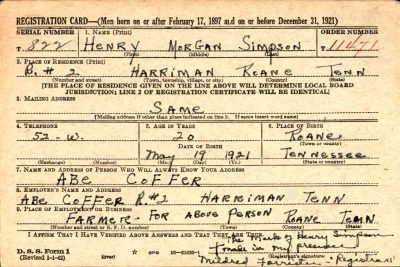 REGISTRATION CARD—(Men born on or after February 17, 1897 and on or before December 31, 1921)
SERIAL NUMBER 1. NAME (Print) ORDER NUMBER
T-822 HENRY MORGAN SIMPSON 11471
(First) (Middle) (Last)
2. PLACE OF RESIDENCE (Print)
R.#2 HARRIMAN ROANE TENN
(Number and street) (Town, township, village, or city) (County) (State)
[THE PLACE OF RESIDENCE GIVEN ON THE LINE ABOVE WILL DETERMINE LOCAL BOARD
JURISDICTION; LINE 2 OF REGISTRATION CERTIFICATE WILL BE IDENTICAL]
3. MAILING ADDRESS
SAME
[Mailing address if other than place indicated on line 2. If same insert word same]
4. TELEPHONE 5. AGE IN YEARS 6. PLACE OF BIRTH
52-W. 20 ROANE
DATE OF BIRTH (Town or county)
MAY 19 1921 TENNESSEE
(Exchange) (Number) (Mo.) (Day) (Yr.) (State or country)
7. NAME AND ADDRESS OF PERSON WHO WILL ALWAYS KNOW YOUR ADDRESS
ABE COFFER
8. EMPLOYER'S NAME AND ADDRESS
ABE COFFER R.#2 HARRIMAN TENN
9. PLACE OF EMPLOYMENT OR BUSINESS
FARMER - FOR ABOVE PERSON ROANE TENN
(Number and street or R. F. D. number) (Town) (County) (State)
I AFFIRM THAT I HAVE VERIFIED ABOVE ANSWERS AND THAT THEY ARE TRUE.
D. S. S. Form 1 The Mark of Henry Simpson
(Revised 1-1-42) made in my presence
Mildred Registrar